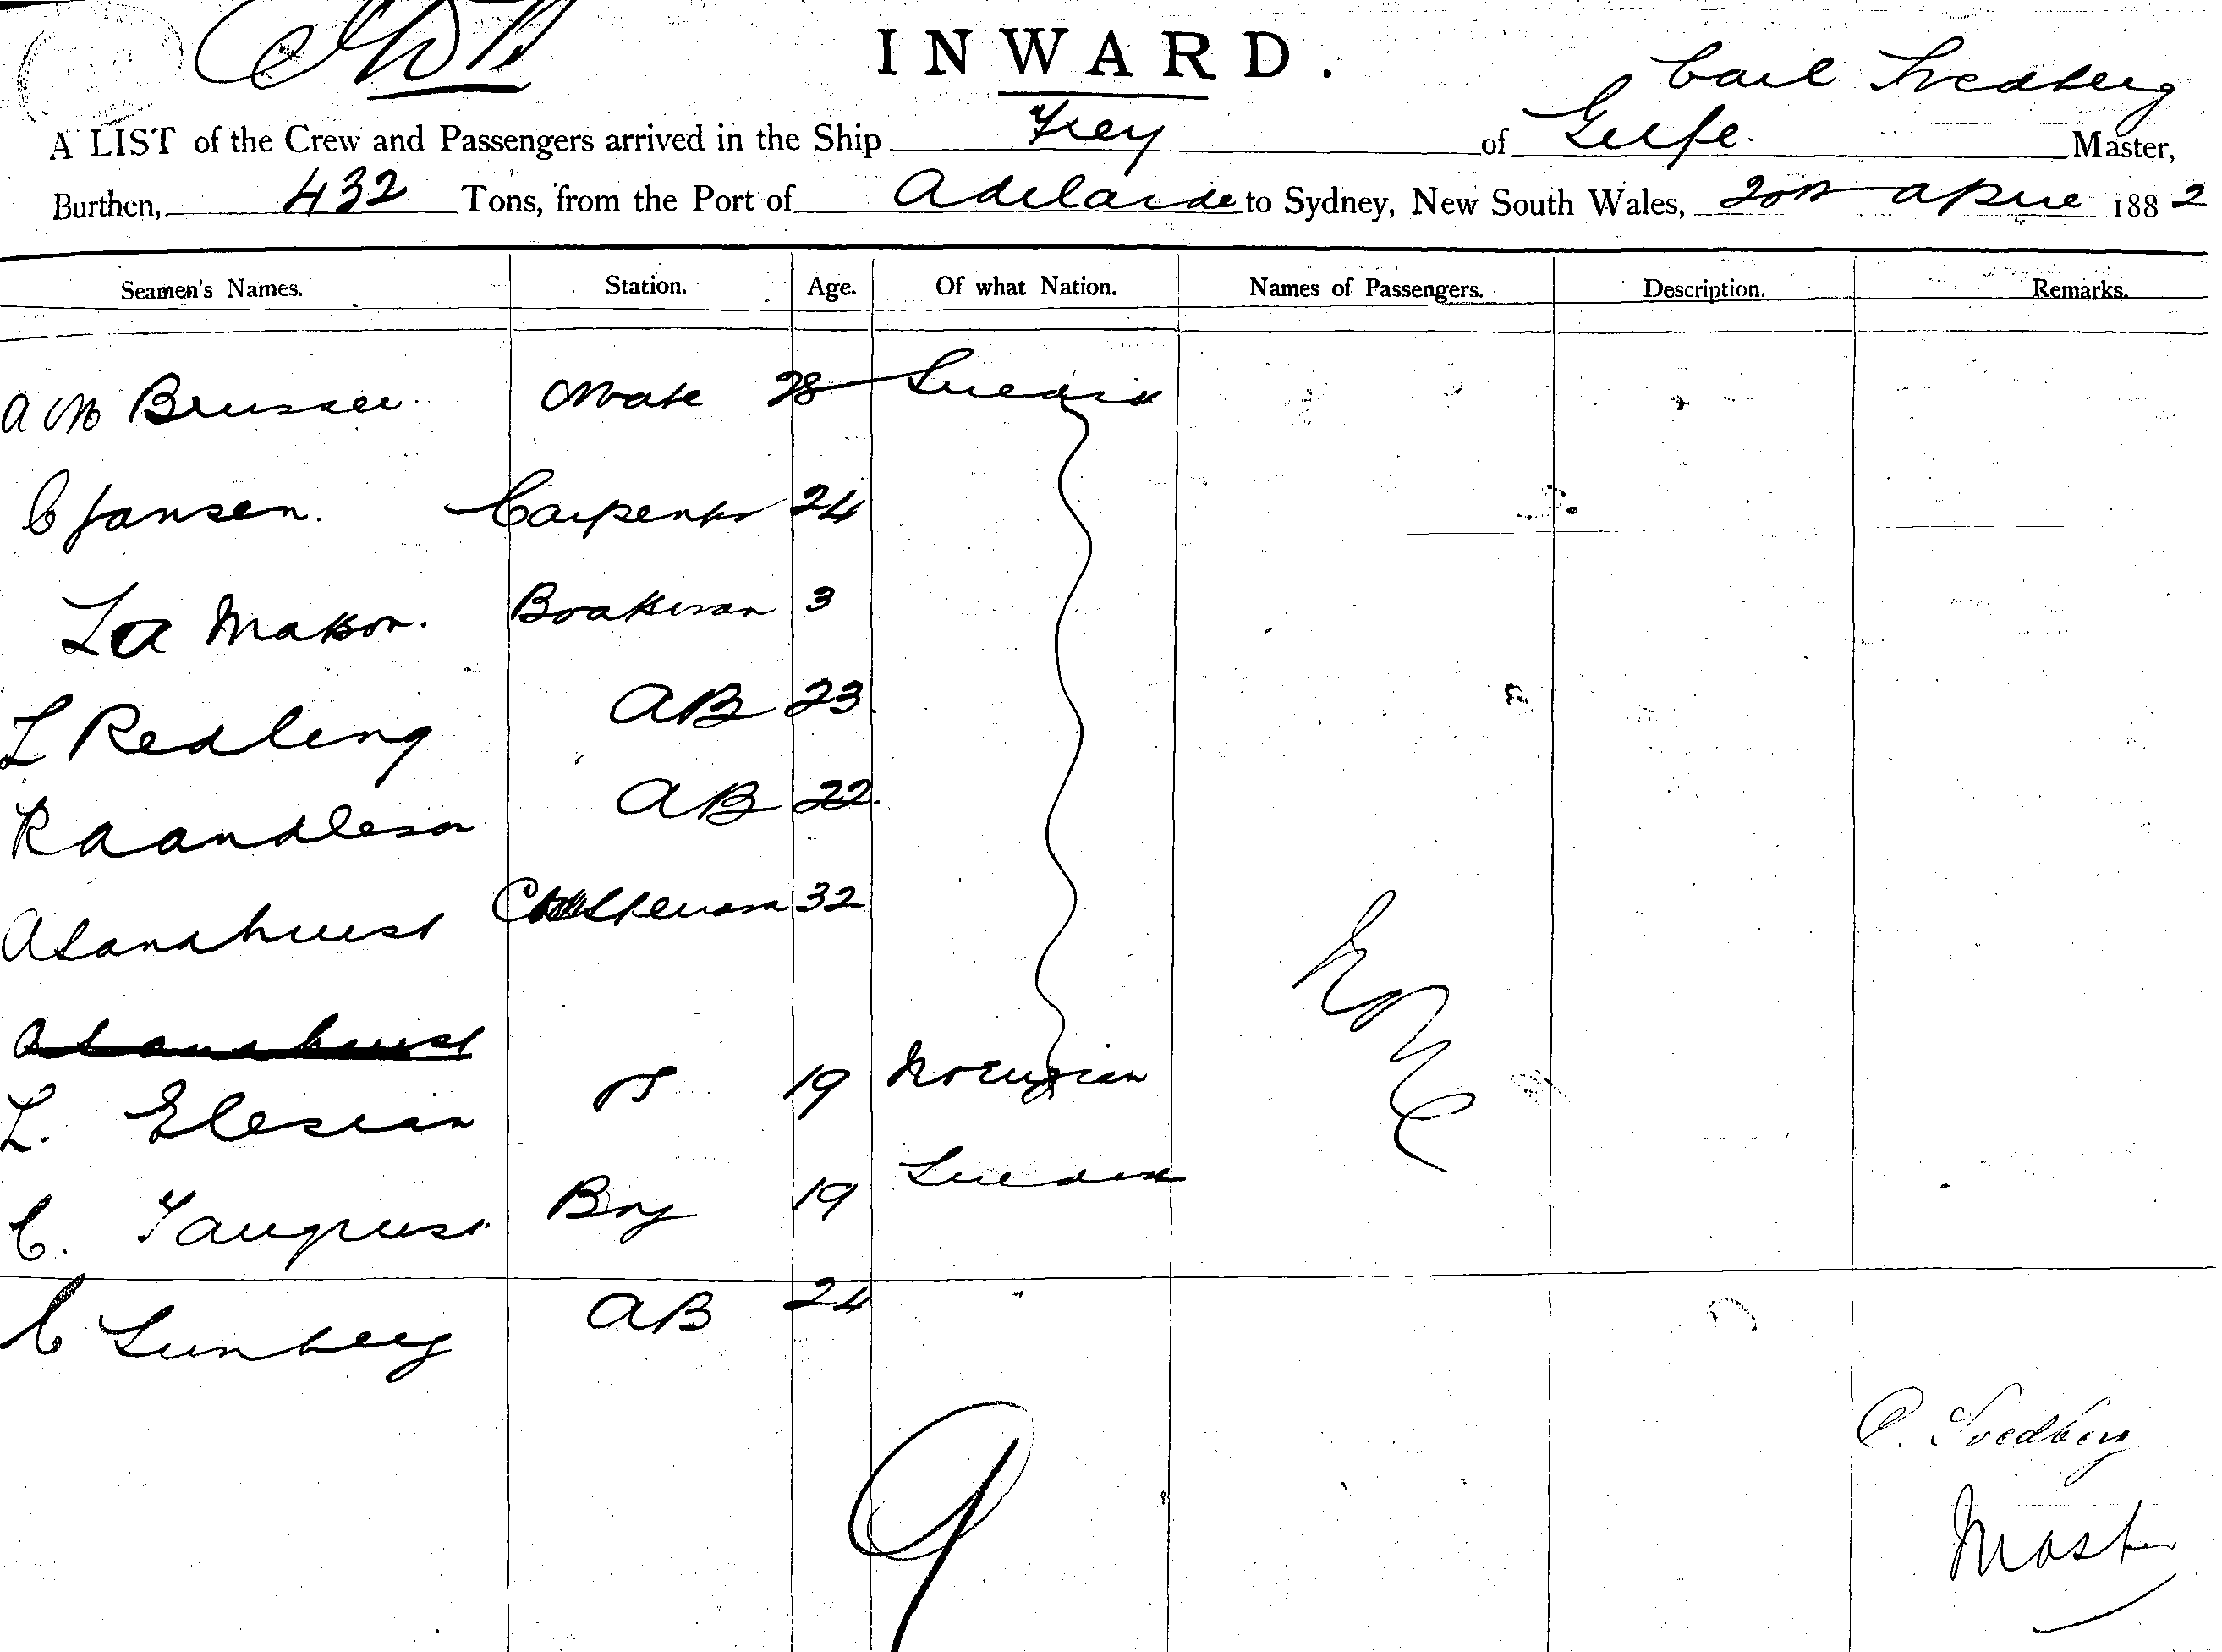 INWARD.
Carl Svedberg
A LIST of the Crew and Passengers arrived in the Ship Frey of Gelfe. Master,
Burthen, 432 Tons, from the Port of Adelaide to Sydney, New South Wales, 20th April 1882
Seamen's Names. Station. Age. Of what Nation. Names of Passengers. Description. Remarks.
A Mate 28 Swedish
C Jansen. Carpenter 24
3
L Redling AB 23
AB 22.
A Sandhurst 32
A Sandhurst
L. OS 19 Norwegian
None
C. Boy 19 Swedish
C Lunberg AB 24
C. Svedberg
Master
9